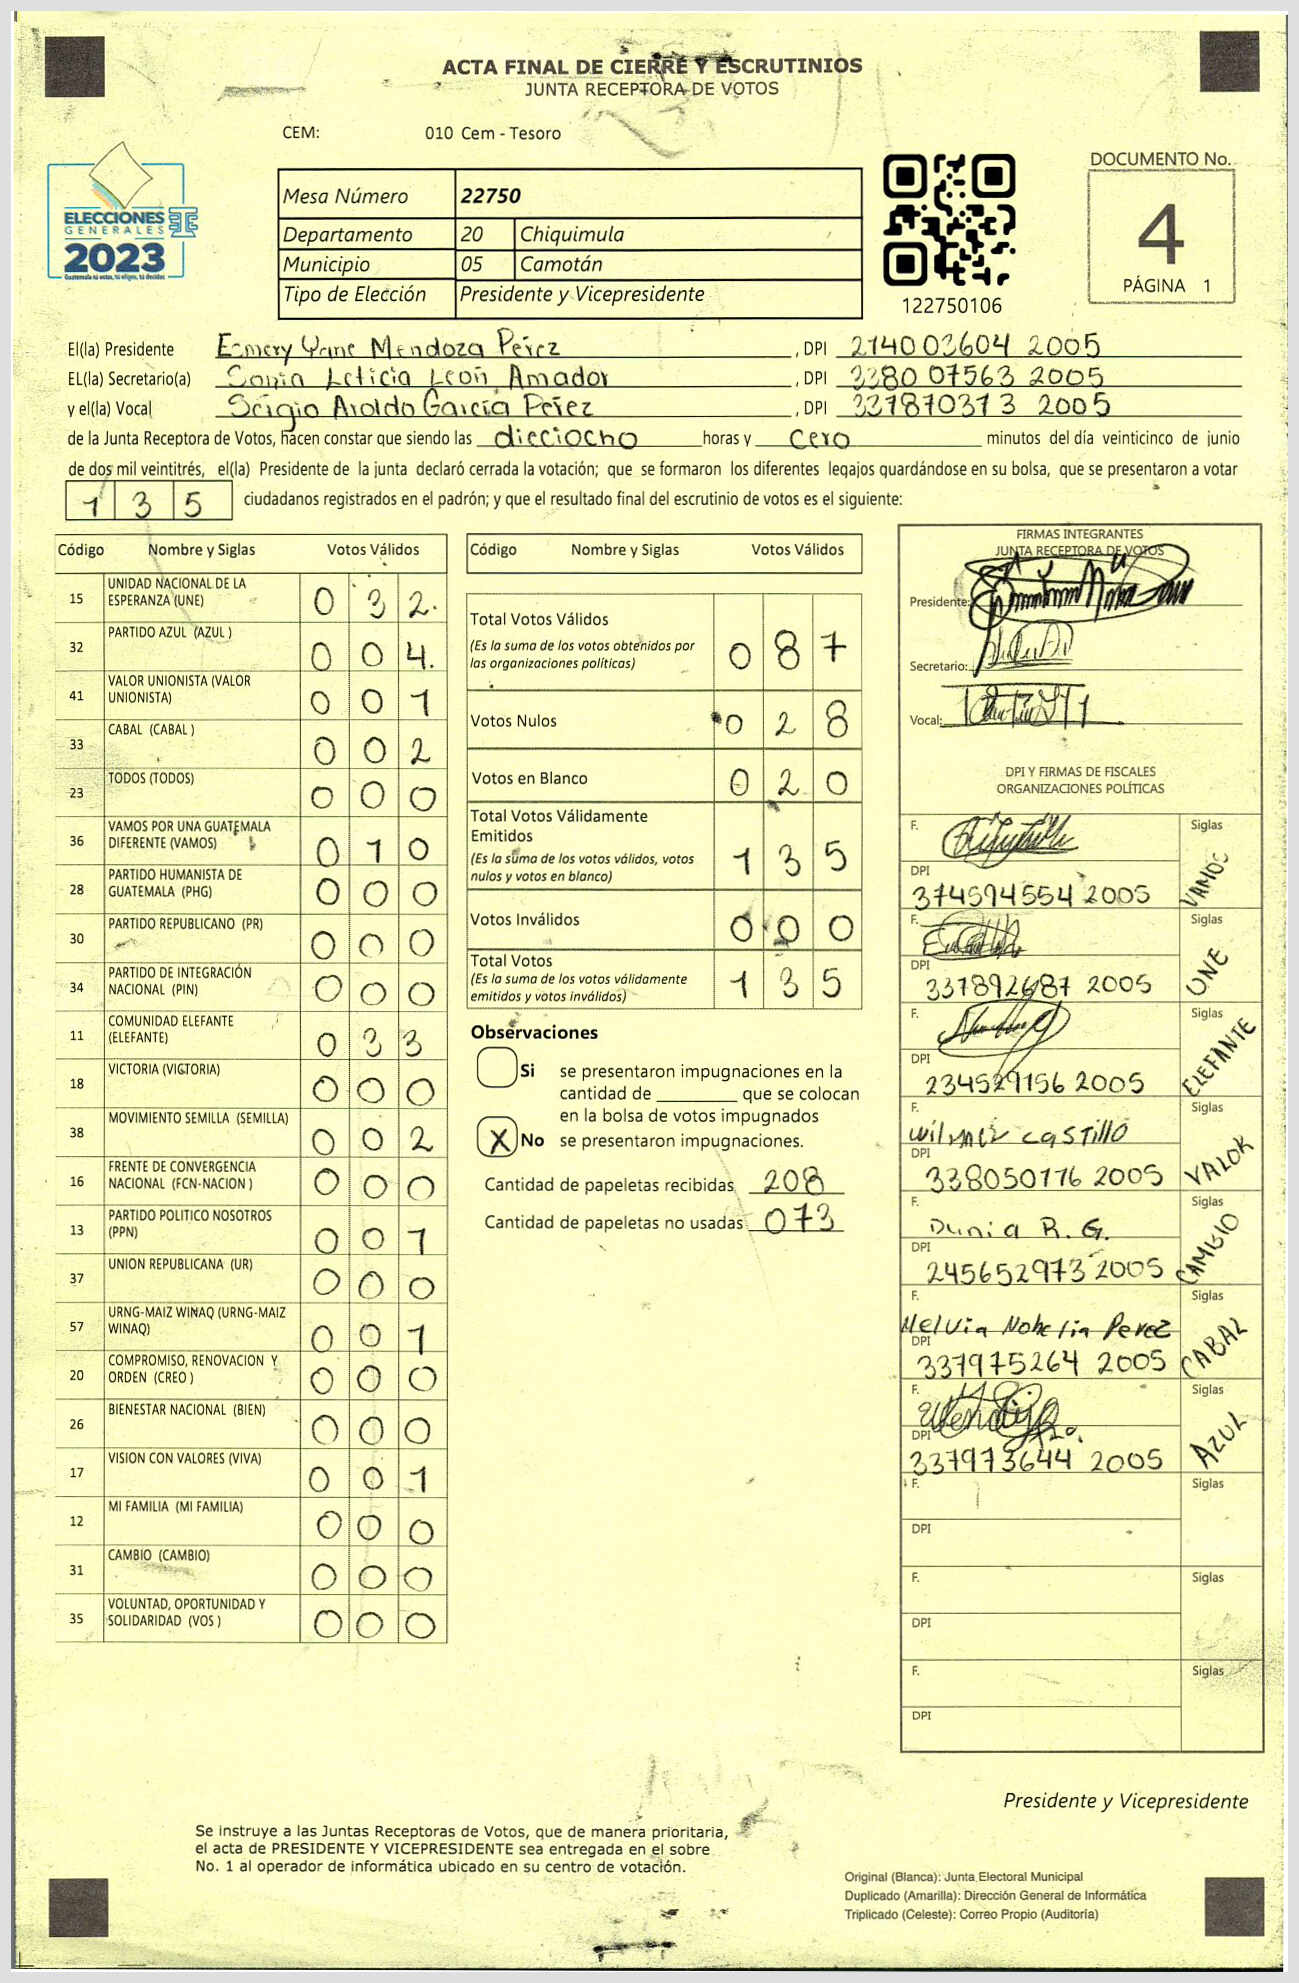 ACTA FINAL DE CIERRE Y ESCRUTINIOS
JUNTA RECEPTORA DE VOTOS
CEM: 010 Cem - Tesoro
ELECCIONES
GENERALES
2023
Mesa Número 22750
Departamento 20 Chiquimula
Municipio 05 Camotán
Tipo de Elección Presidente y Vicepresidente
122750106
DOCUMENTO No.
4
PÁGINA 1
El(la) Presidente Esmery Mendoza Pérez , DPI 214003604 2005
EL(la) Secretario(a) Sonia Leticia León Amador , DPI 338007563 2005
y el(la) Vocal Sergio Aroldo García Pérez , DPI 337870373 2005
de la Junta Receptora de Votos, hacen constar que siendo las dieciocho horas y cero minutos del día veinticinco de junio
de dos mil veintitrés, el(la) Presidente de la junta declaró cerrada la votación; que se formaron los diferentes legajos quardándose en su bolsa, que se presentaron a votar
135 ciudadanos registrados en el padrón; y que el resultado final del escrutinio de votos es el siguiente:
Código Nombre y Siglas Votos Válidos
15 UNIDAD NACIONAL DE LA ESPERANZA (UNE) 0 3 2.
32 PARTIDO AZUL (AZUL ) 0 0 4.
41 VALOR UNIONISTA (VALOR UNIONISTA) 0 0 1
33 CABAL (CABAL ) 0 0 2
23 TODOS (TODOS) 0 0 0
36 VAMOS POR UNA GUATEMALA DIFERENTE (VAMOS) 0 1 0
28 PARTIDO HUMANISTA DE GUATEMALA (PHG) 0 0 0
30 PARTIDO REPUBLICANO (PR) 0 0 0
34 PARTIDO DE INTEGRACIÓN NACIONAL (PIN) 0 0 0
11 COMUNIDAD ELEFANTE (ELEFANTE) 0 3 3
18 VICTORIA (VICTORIA) 0 0 0
38 MOVIMIENTO SEMILLA (SEMILLA) 0 0 2
16 FRENTE DE CONVERGENCIA NACIONAL (FCN-NACION ) 0 0 0
13 PARTIDO POLITICO NOSOTROS (PPN) 0 0 1
37 UNION REPUBLICANA (UR) 0 0 0
57 URNG-MAIZ WINAQ (URNG-MAIZ WINAQ) 0 0 1
20 COMPROMISO, RENOVACION Y ORDEN (CREO ) 0 0 0
26 BIENESTAR NACIONAL (BIEN) 0 0 0
17 VISION CON VALORES (VIVA) 0 0 1
12 MI FAMILIA (MI FAMILIA) 0 0 0
31 CAMBIO (CAMBIO) 0 0 0
35 VOLUNTAD, OPORTUNIDAD Y SOLIDARIDAD (VOS ) 0 0 0
Código Nombre y Siglas Votos Válidos
Total Votos Válidos 0 8 7
(Es la suma de los votos obtenidos por
las organizaciones políticas)
Votos Nulos 0 2 8
Votos en Blanco 0 2 0
Total Votos Válidamente
Emitidos 1 3 5
(Es la suma de los votos válidos, votos
nulos y votos en blanco)
Votos Inválidos 0 0 0
Total Votos 1 3 5
(Es la suma de los votos válidamente
emitidos y votos inválidos)
Observaciones
Si se presentaron impugnaciones en la
cantidad de ________ que se colocan
en la bolsa de votos impugnados
X No se presentaron impugnaciones.
Cantidad de papeletas recibidas 208
Cantidad de papeletas no usadas 073
FIRMAS INTEGRANTES
JUNTA RECEPTORA DE VOTOS
Presidente:
Secretario:
Vocal:
DPI Y FIRMAS DE FISCALES
ORGANIZACIONES POLÍTICAS
F. Siglas VAMOS
DPI 374594554 2005
F. Siglas UNE
DPI 337892687 2005
F. Siglas ELEFANTE
DPI 234529156 2005
F. Wilmer CASTILLO Siglas VALOR
DPI 338050776 2005
F. Dunia R. G. Siglas CAMBIO
DPI 245652973 2005
F. Melvia Nohelia Perez Siglas CABAL
DPI 337975264 2005
F. Siglas AZUL
DPI 337973644 2005
F. Siglas
DPI
F. Siglas
DPI
F. Siglas
DPI
Presidente y Vicepresidente
Se instruye a las Juntas Receptoras de Votos, que de manera prioritaria,
el acta de PRESIDENTE Y VICEPRESIDENTE sea entregada en el sobre
No. 1 al operador de informática ubicado en su centro de votación.
Original (Blanca): Junta Electoral Municipal
Duplicado (Amarilla): Dirección General de Informática
Triplicado (Celeste): Correo Propio (Auditoría)